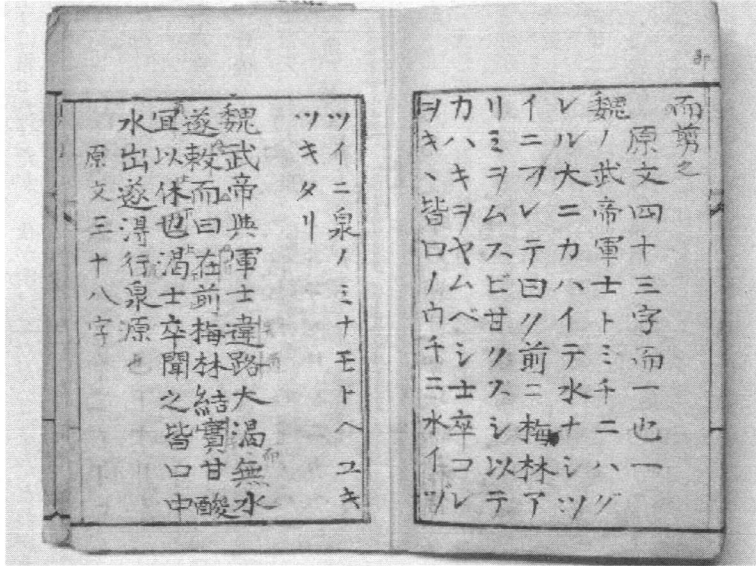 而剪之
原文四十三字而一也一
魏ノ武帝軍士トミチニハグ
レル大ニカハイテ水ナシツ
イニフレテ曰ク前ニ梅林ア
リミヲムスビ甘クスシ以テ
カハキヲヤムベシ士卒コレ
ヲキヽ皆口ノウチニ水イヅ
ツイニ泉ノミナモトヘユキ
ツキタリ
魏武帝與軍士違路大渴無水
遂敕而曰在前梅林結實甘酸
宜以休也渴士卒聞之皆口中
水出遂得行泉源也
原文三十八字